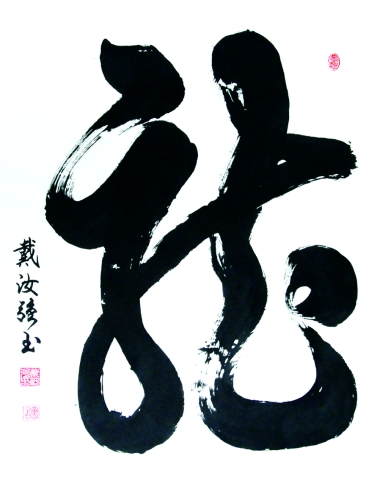 龍
戴汝強書